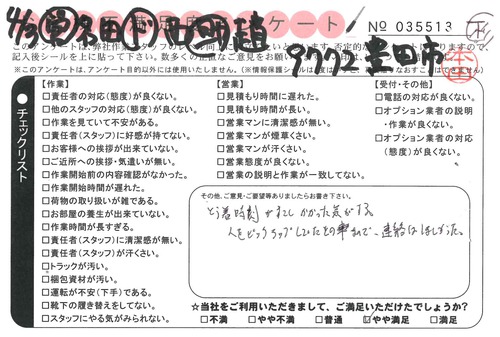 アンケート
№ 035513
4/3
豊田市
記入後シールを上に貼って下さい。数多くの正直なご意見をお願い
※このアンケートは、アンケート目的以外には使用いたしません。(※情報保護シール
チェックリスト
【作業】
□責任者の対応(態度)が良くない。
□他のスタッフの対応(態度)が良くない。
□作業を見ていて不安がある。
□責任者(スタッフ)に好感が持てない。
□お客様への挨拶が出来ていない。
□ご近所への挨拶・気遣いが無い。
□作業開始前の内容確認がなかった。
□作業開始時間が遅れた。
□荷物の取り扱いが雑である。
□お部屋の養生が出来ていない。
□作業時間が長すぎる。
□責任者(スタッフ)に清潔感が無い。
□責任者(スタッフ)が汗くさい。
□トラックが汚い。
□梱包資材が汚い。
□運転が不安(下手)である。
□靴下の履き替えをしてない。
□スタッフにやる気がみられない。
【営業】
□見積もり時間に遅れた。
□見積もり時間が長い。
□営業マンに清潔感が無い。
□営業マンが煙草くさい。
□営業マンが汗くさい。
□営業態度が良くない。
□営業の説明と作業が一致してない。
【受付・その他】
□電話の対応が良くない。
□オプション業者の説明
・作業が良くない。
□オプション業者の対応
(態度)が良くない。
その他、ご意見・ご要望等ありましたらお書き下さい。
とう着時刻が少しかかった気がする。
人をピックアップしていたの事なので、連絡はほしかった。
☆当社をご利用いただきまして、ご満足いただけたでしょうか?
□不満 □やや不満 □普通 ☑やや満足 □満足